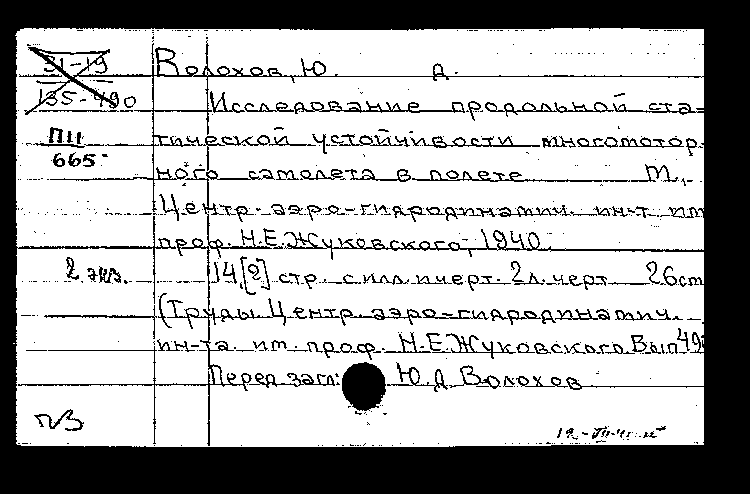 31-19
135-490
Волохов, Ю. Д.
Исследование продольной ста-
тической устойчивости многомотор-
ПЦ
665
ного самолета в полете М.,
Центр. аэро-гидродинамич. ин-т им
проф. Н.Е.Жуковского, 1940.
2 экз.
14,[2] стр. с илл. и черт. 2л. черт 26см
(Труды Центр. аэро-гидродинамич.
ин-та им. проф. Н.Е.Жуковского. Вып 49
Перед загл: Ю.Д Волохов